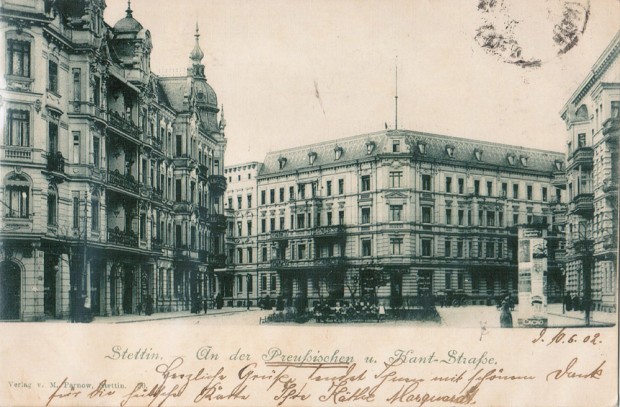 Stettin. An der Preußischen u. Kant-Straße.
d. 10.6.02.
Herzliche Grüße sendet Ihnen mit schönem Dank
Verlag v. M. Pernow, Stettin.
für die hübsche Karte Ihre Käthe Marquardt